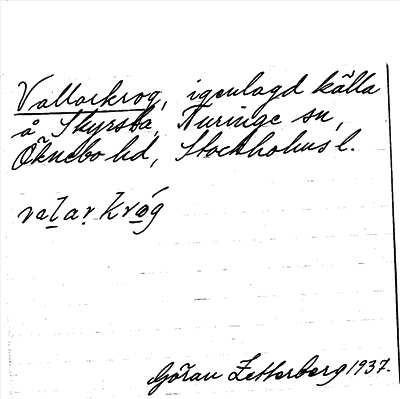 Vallarkrog, igenlagd källa
å Skyrsta, Turinge sn,
Öknebo hd, Stockholms l.
valar krog
Göran Zetterberg 1937.